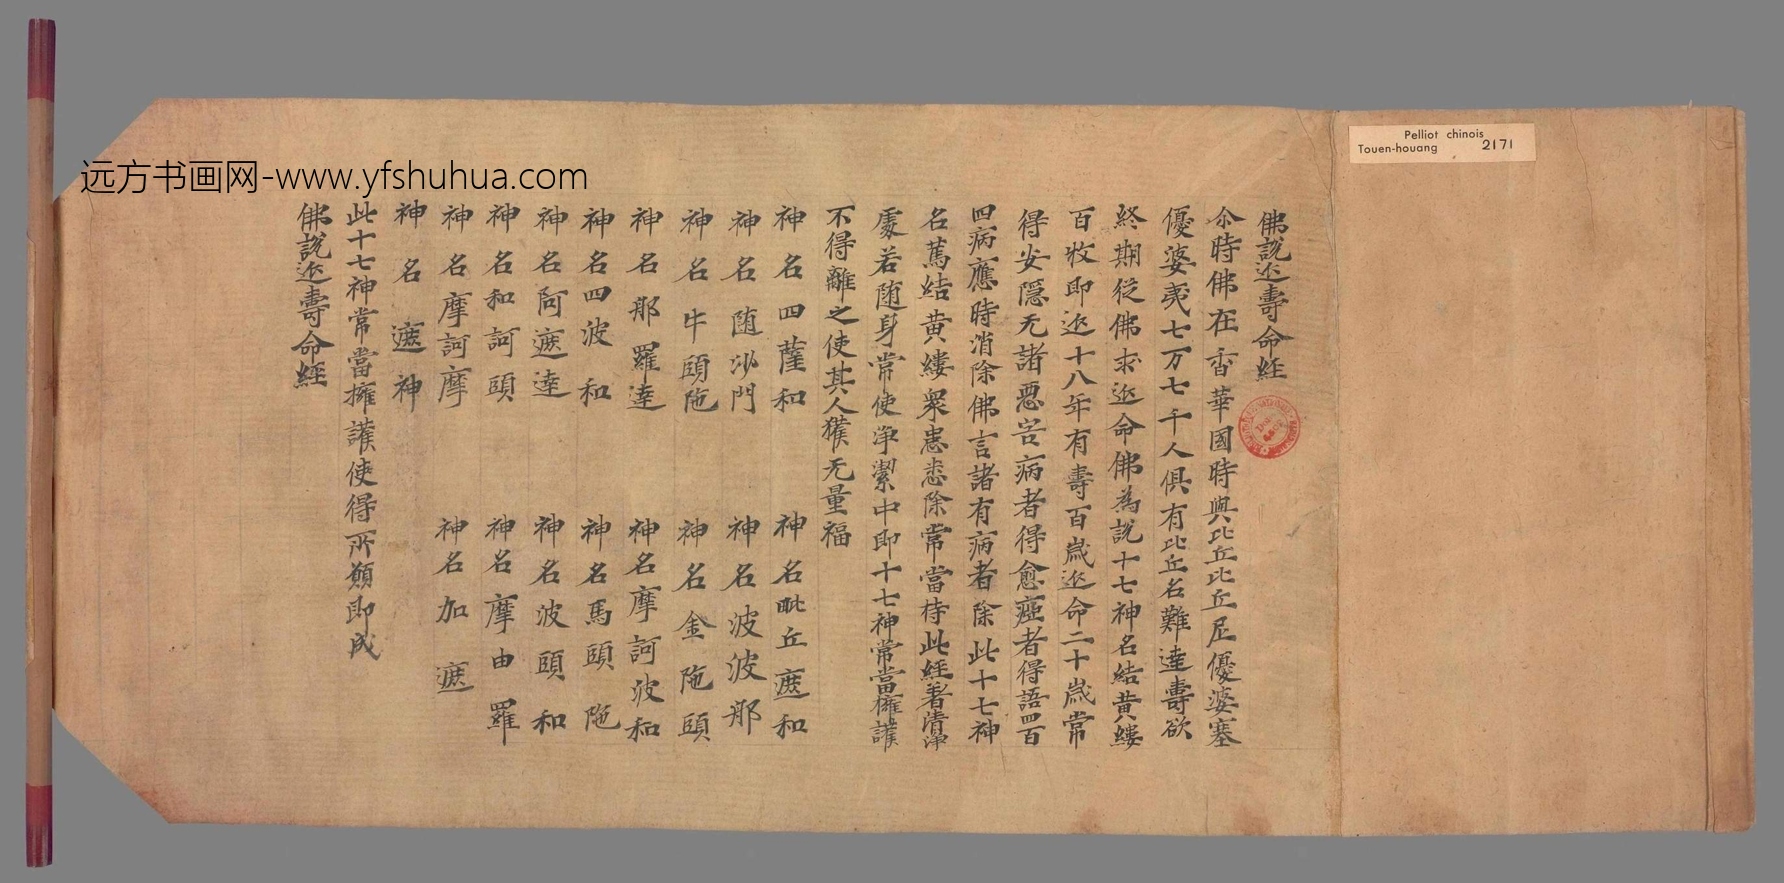 Pelliot chinois
Touen-houang 2171
远方书画网-www.yfshuhua.com
佛說延壽命經
尒時佛在香華國時與比丘比丘尼優婆塞
優婆夷七万七千人俱有比丘名難達壽欲
終期從佛求延命佛為說十七神名結黃縷
百枚即延十八年有壽百歲延命二十歲常
得安隱无諸惡害病者得愈瘂者得語四百
四病應時消除佛言諸有病者除此十七神
名為結黃縷眾患悉除常當持此經著清淨
處若随身常使淨潔中即十七神常當擁護
不得離之使其人獲无量福
神名四薩和 神名毗丘遮和
神名随沙門 神名波波那
神名牛頭陁 神名金陁頭
神名那羅達 神名摩訶波和
神名四波和 神名馬頭陁
神名阿遮達 神名波頭和
神名和訶頭 神名摩由羅
神名摩訶摩 神名加遮
神名遮神
此十七神常當擁護使得所願即成
佛說延壽命經